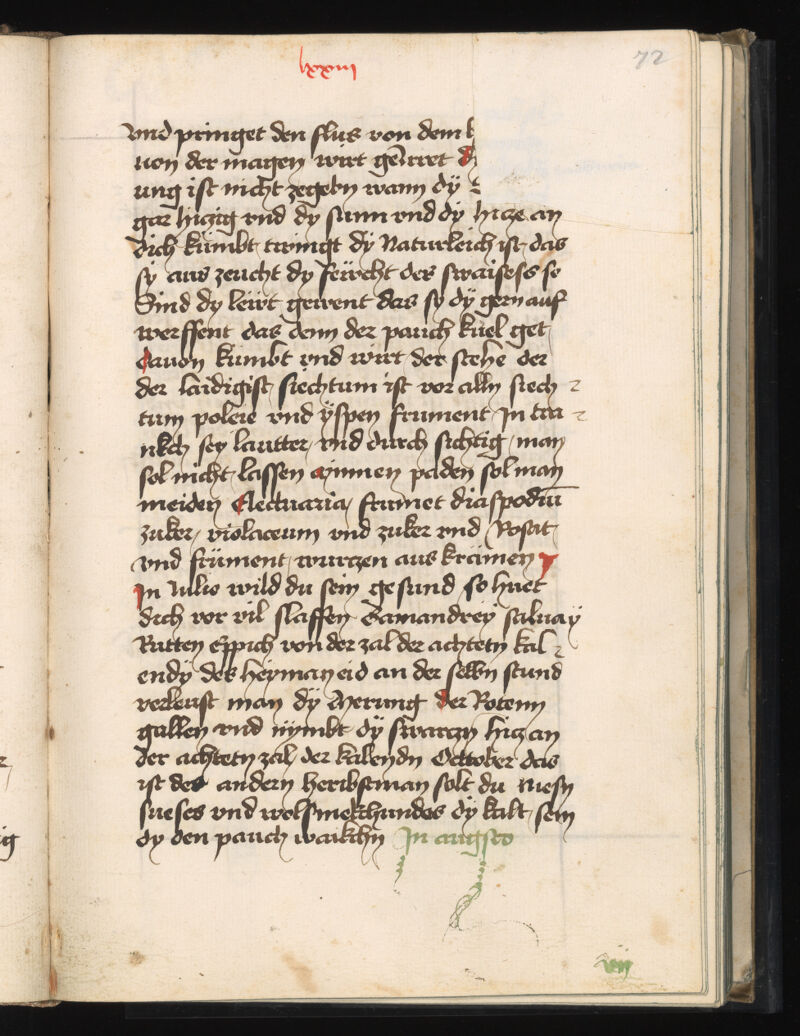 lxxiii
72
vnd pringet den flus von dem
uon der magen wirt geirret
ung ist nicht zegebn wann dÿ
gar hiczig vnd dy sunn vnd dÿ hicze an
dich kümbt twingt dÿ Naturleich ist das
sy aus zeucht dy feücht des swaisess so
Sind dy lewt gewent das sy dÿ gern auf
werffent das denn der pauch küel get
dauon kümbt vnd wirt der siehe der
der laidigist siechtum ist vor alln siech
tum poleie vnd ÿspen frument Jn tra
nkch sey lautter vnd durch sichtig man
sol nicht lassen ainmen paden sol man
meiden Electuaria frumet diaspodiū
zuker violaceum vnd zuker vnd Rosat
vnd früment wurczen aus kramen
Jn Julio wild du sein gesund so huet
dich vor vil slaffen Gamandrey saluaÿ
Rutten Eppich von der zal der achtetn kal
endy des heÿman eid an der selbn stund
verleust man dÿ Merung der Rotenn
gallen vnd nymbt dÿ swarczn hicz an
der achtetn zal der kalendn October das
ist des andern heribstman solt du niesn
sueses vnd wolsmekhundes dÿ kalt sein
dy den pauch waikchn Jn augsto
viij